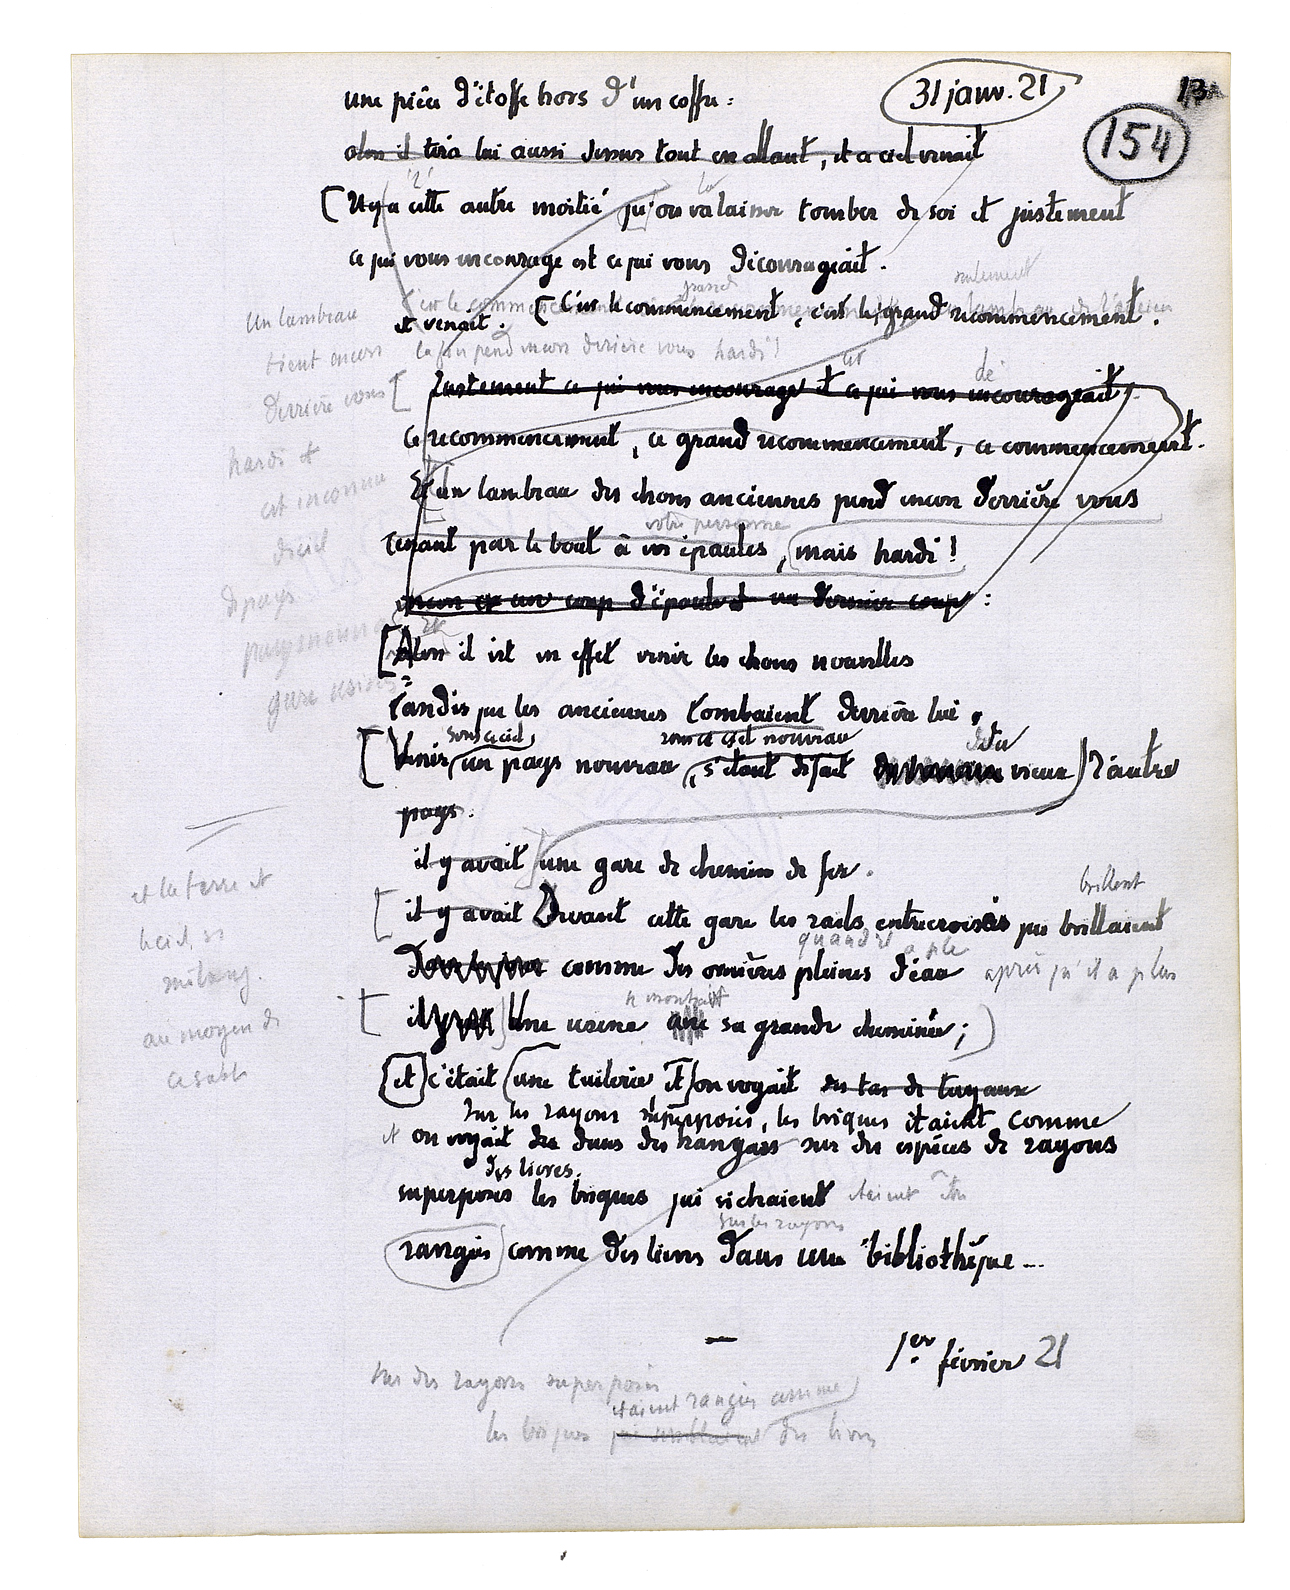 31 janv. 21
13
154
une pièce d'étoffe hors d'un coffre :
alors il tira lui aussi dessus tout en allant, et ce ciel venait
Il y a cette autre moitié qu'on va laisser tomber de soi et justement
ce qui vous encourage est ce qui vous décourageait.
seulement
et venait. C'est le commencement, c'est le grand recommencement.
la fin pend encore derrière vous hardi !
Un lambeau
tient encore
derrière vous
hardi et
est inconnu
du ciel
de pays
est
dé
Justement ce qui vous encourage et ce qui vous encourageait
ce recommencement, ce grand recommencement, ce commencement.
Et un lambeau des choses anciennes pend encore derrière vous
votre personne
tenant par le bout à vos épaules, mais hardi !
encore un coup d'épaule et un dernier coup :
Alors il vit en effet venir les choses nouvelles
tandis que les anciennes tombaient derrière lui.
sous ce ciel sous ce ciel nouveau
Venir un pays nouveau, s'étant défait du vieux l'autre
pays.
il y avait une gare de chemin de fer.
brillent
il y avait Devant cette gare les rails entrecroisés qui brillaient
quand il a plu
comme des ornières pleines d'eau après qu'il a plu
et la terre et
le ciel, se
mélang.
au moyen de
ce sable
montrait
Une usine avec sa grande cheminée ;
et c'était une tuilerie, et on voyait des tas de tuyaux
Sur les rayons superposés, les briques étaient comme
et on voyait dans des hangars sur des espèces de rayons
des livres.
superposés les briques qui séchaient étaient
sur les rayons
rangées comme des livres dans une bibliothèque...
1er février 21
sur des rayons superposés
étaient rangées comme
les briques qui semblaient des livres